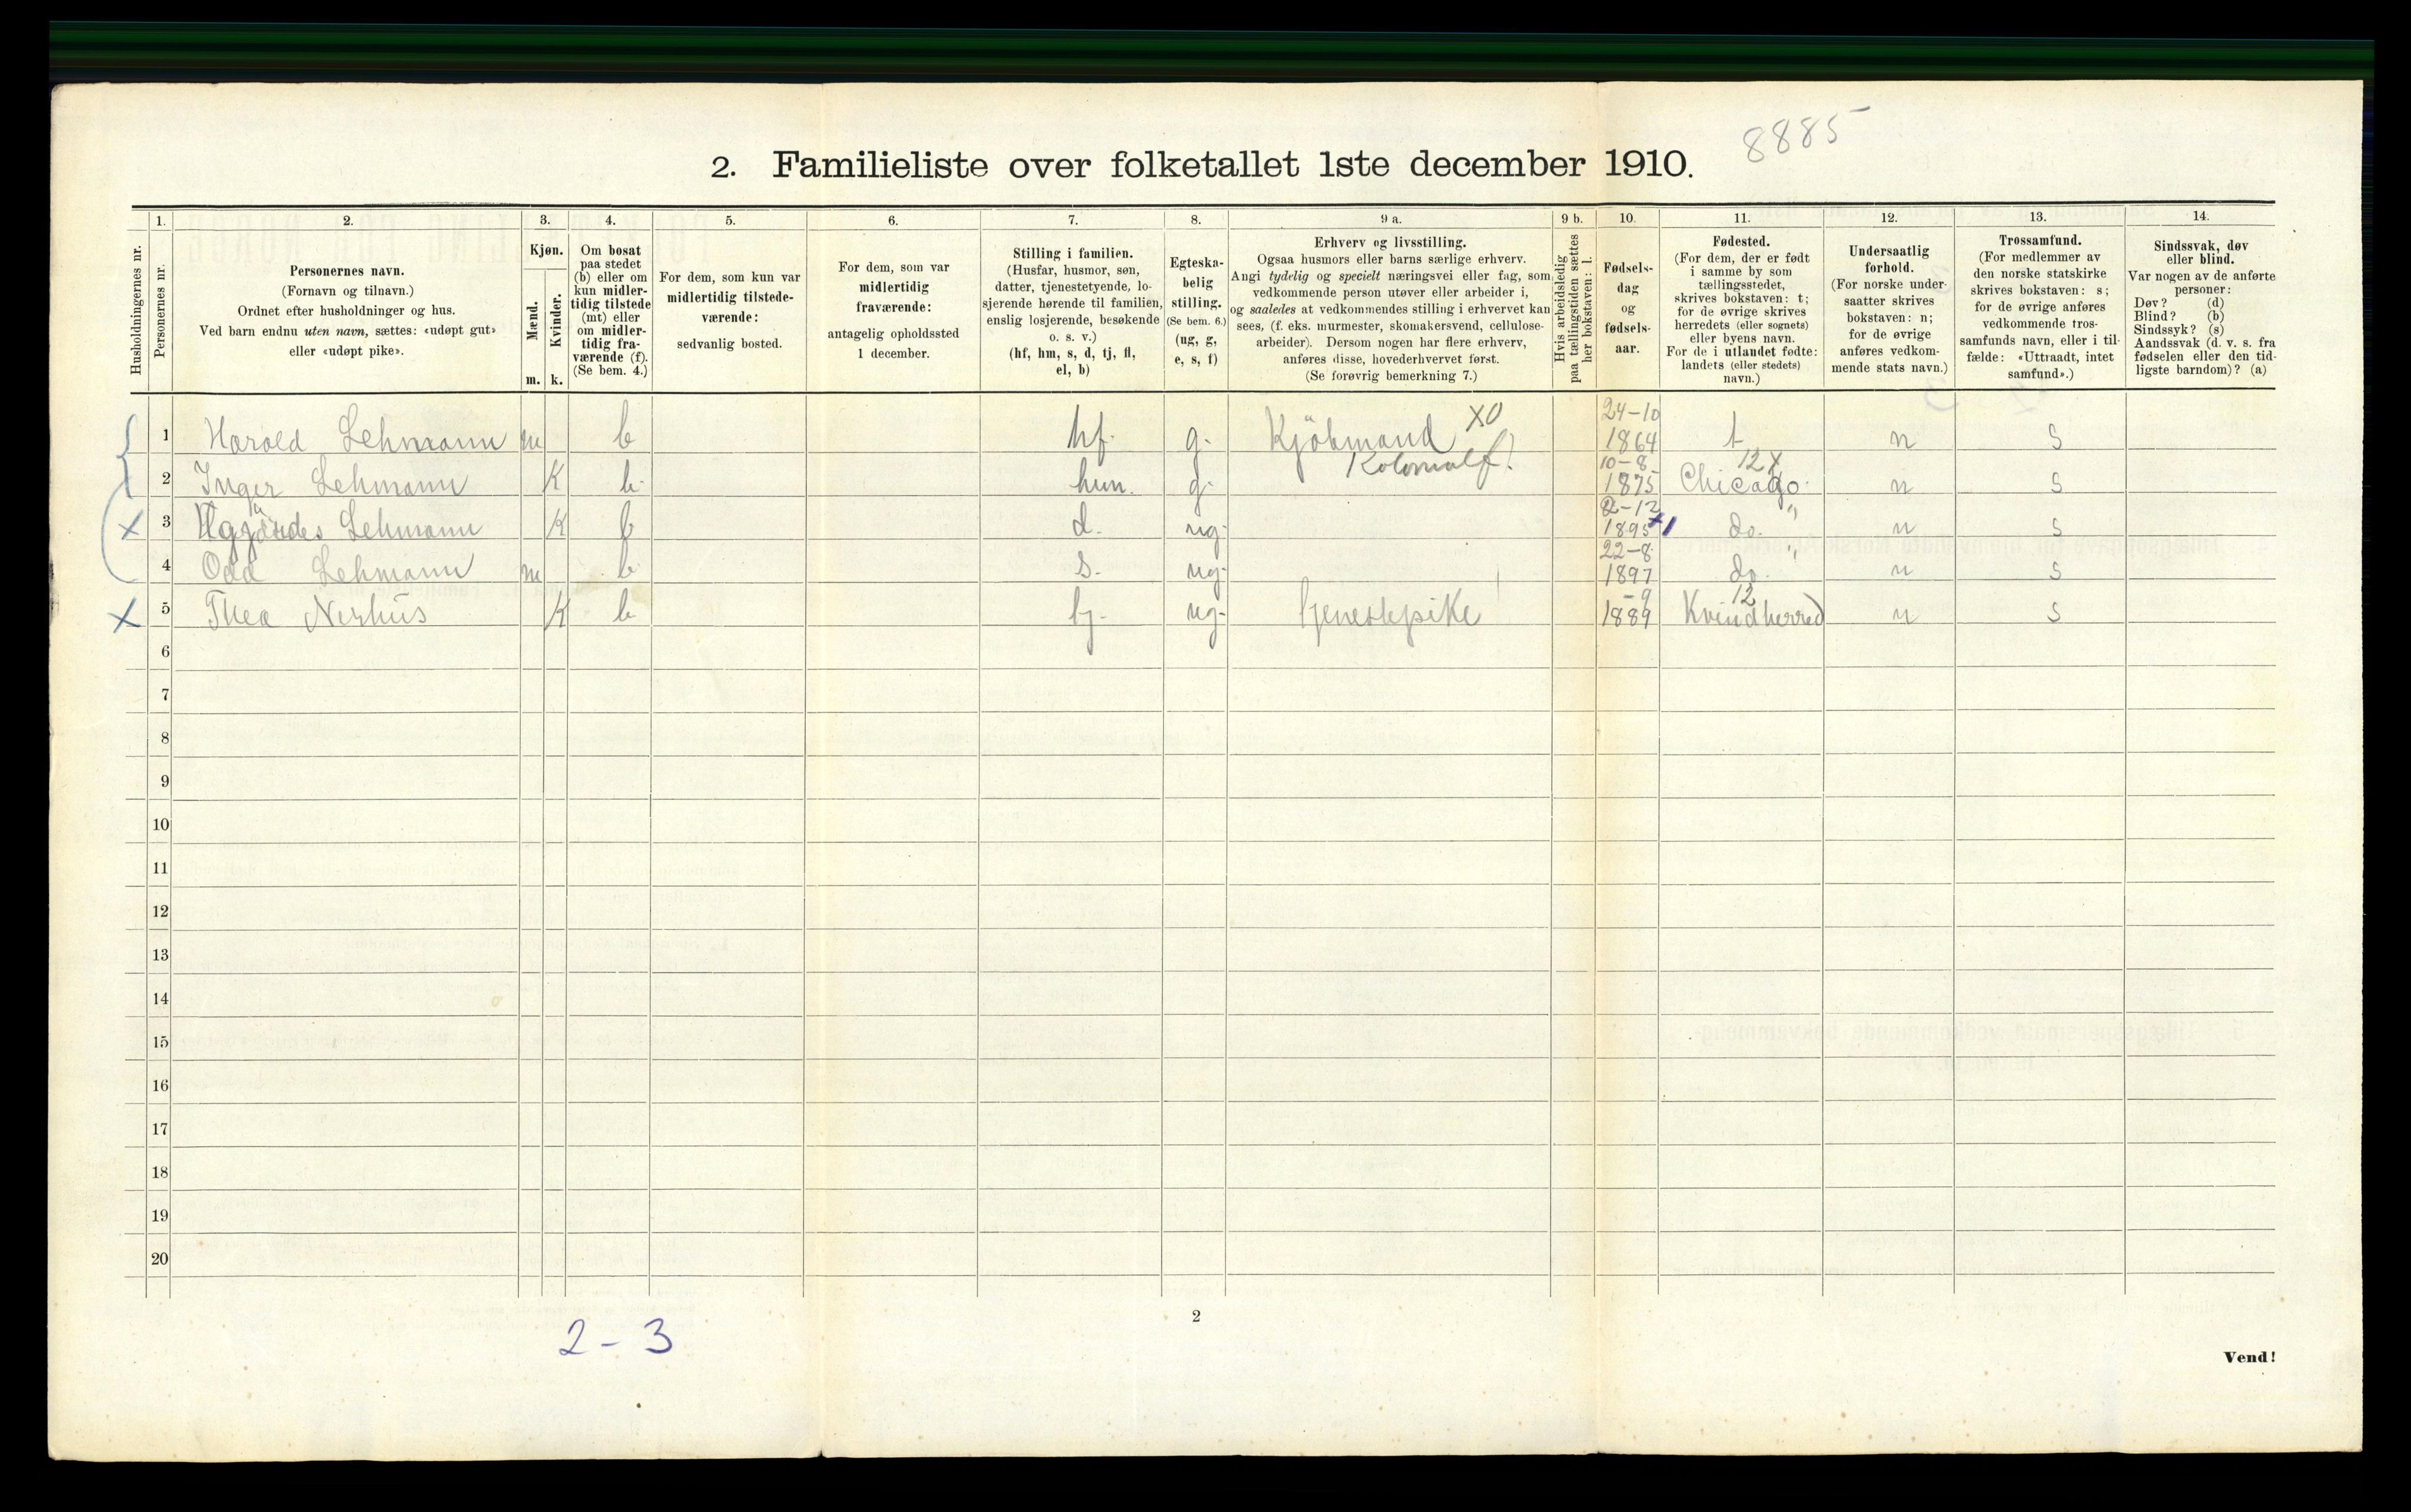 8885
2. Familieliste over folketallet 1ste december 1910.
1. 2. 3. 4. 5. 6. 7. 8. 9 a. 9 b. 10. 11. 12. 13. 14.
Husholdningernes nr.
Personernes nr.
Personernes navn.
(Fornavn og tilnavn.)
Ordnet efter husholdninger og hus.
Ved barn endnu uten navn, sættes: «udøpt gut»
eller «udøpt pike».
Kjøn.
Mænd.
Kvinder.
m. k.
Om bosat
paa stedet
(b) eller om
kun midler-
tidig tilstede
(mt) eller
om midler-
tidig fra-
værende (f).
(Se bem. 4.)
For dem, som kun var
midlertidig tilstede-
værende:
sedvanlig bosted.
For dem, som var
midlertidig
fraværende:
antagelig opholdssted
1 december.
Stilling i familien.
(Husfar, husmor, søn,
datter, tjenestetyende, lo-
sjerende hørende til familien,
enslig losjerende, besøkende
o. s. v.)
(hf, hm, s, d, tj, fl,
el, b)
Egteska-
belig
stilling.
(Se bem. 6.)
(ug, g,
e, s, f)
Erhverv og livsstilling.
Ogsaa husmors eller barns særlige erhverv.
Angi tydelig og specielt næringsvei eller fag, som
vedkommende person utøver eller arbeider i,
og saaledes at vedkommendes stilling i erhvervet kan
sees, (f. eks. murmester, skomakersvend, cellulose-
arbeider). Dersom nogen har flere erhverv,
anføres disse, hovederhvervet først.
(Se forøvrig bemerkning 7.)
Hvis arbeidsledig
paa tællingstiden sættes
her bokstaven: l.
Fødsels-
dag
og
fødsels-
aar.
Fødested.
(For dem, der er født
i samme by som
tællingsstedet,
skrives bokstaven: t;
for de øvrige skrives
herredets (eller sognets)
eller byens navn.
For de i utlandet fødte:
landets (eller stedets)
navn.)
Undersaatlig
forhold.
(For norske under-
saatter skrives
bokstaven: n;
for de øvrige
anføres vedkom-
mende stats navn.)
Trossamfund.
(For medlemmer av
den norske statskirke
skrives bokstaven: s;
for de øvrige anføres
vedkommende tros-
samfunds navn, eller i til-
fælde: «Uttraadt, intet
samfund».)
Sindssvak, døv
eller blind.
Var nogen av de anførte
personer:
Døv? (d)
Blind? (b)
Sindssyk? (s)
Aandssvak (d. v. s. fra
fødselen eller den tid-
ligste barndom)? (a)
1 Harold Lehmann m b hf. g. Kjöbmand XO Kolonialf. 24-10 1864 t n s
2 Inger Lehmann K b. hm. g. 10-8 1875 12 X Chicago n s
X 3 Lehmann K b d. ug. 2-12 1895 do. " n s
4 Odd Lehmann m b s. ug. 22-8 1897 do. " n s
X 5 Thea Nerhus K b tj. ug. tjenestepike -9 1889 12 Kvindherred n s
6
7
8
9
10
11
12
13
14
15
16
17
18
19
20
2
2-3
Vend!